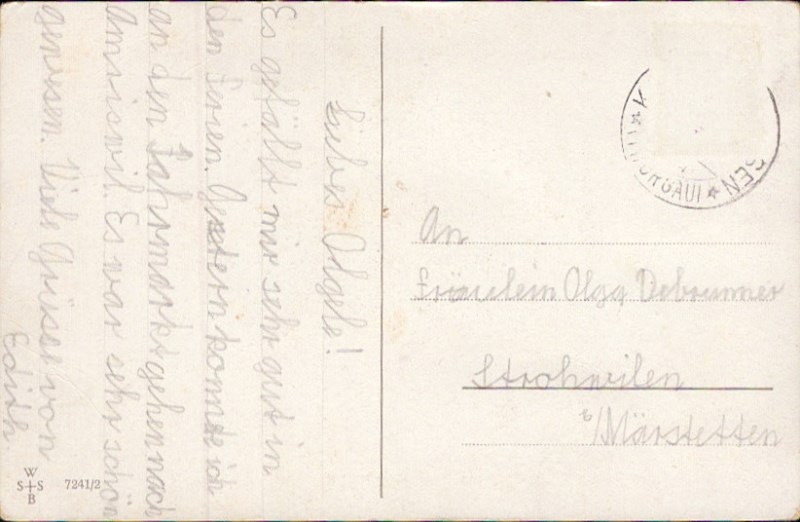 Liebes Olgeli!
Es gefällt mir sehr gut in
den Ferien. Gestern konnte ich
an den Jahrmarkt gehen nach
Amriswil. Es war sehr schön
gewesen. Viele Grüsse von
Edith.
An
Fräulein Olga Debrunner
Strohwilen
b/Märstetten
W
S+S
B
7241/2